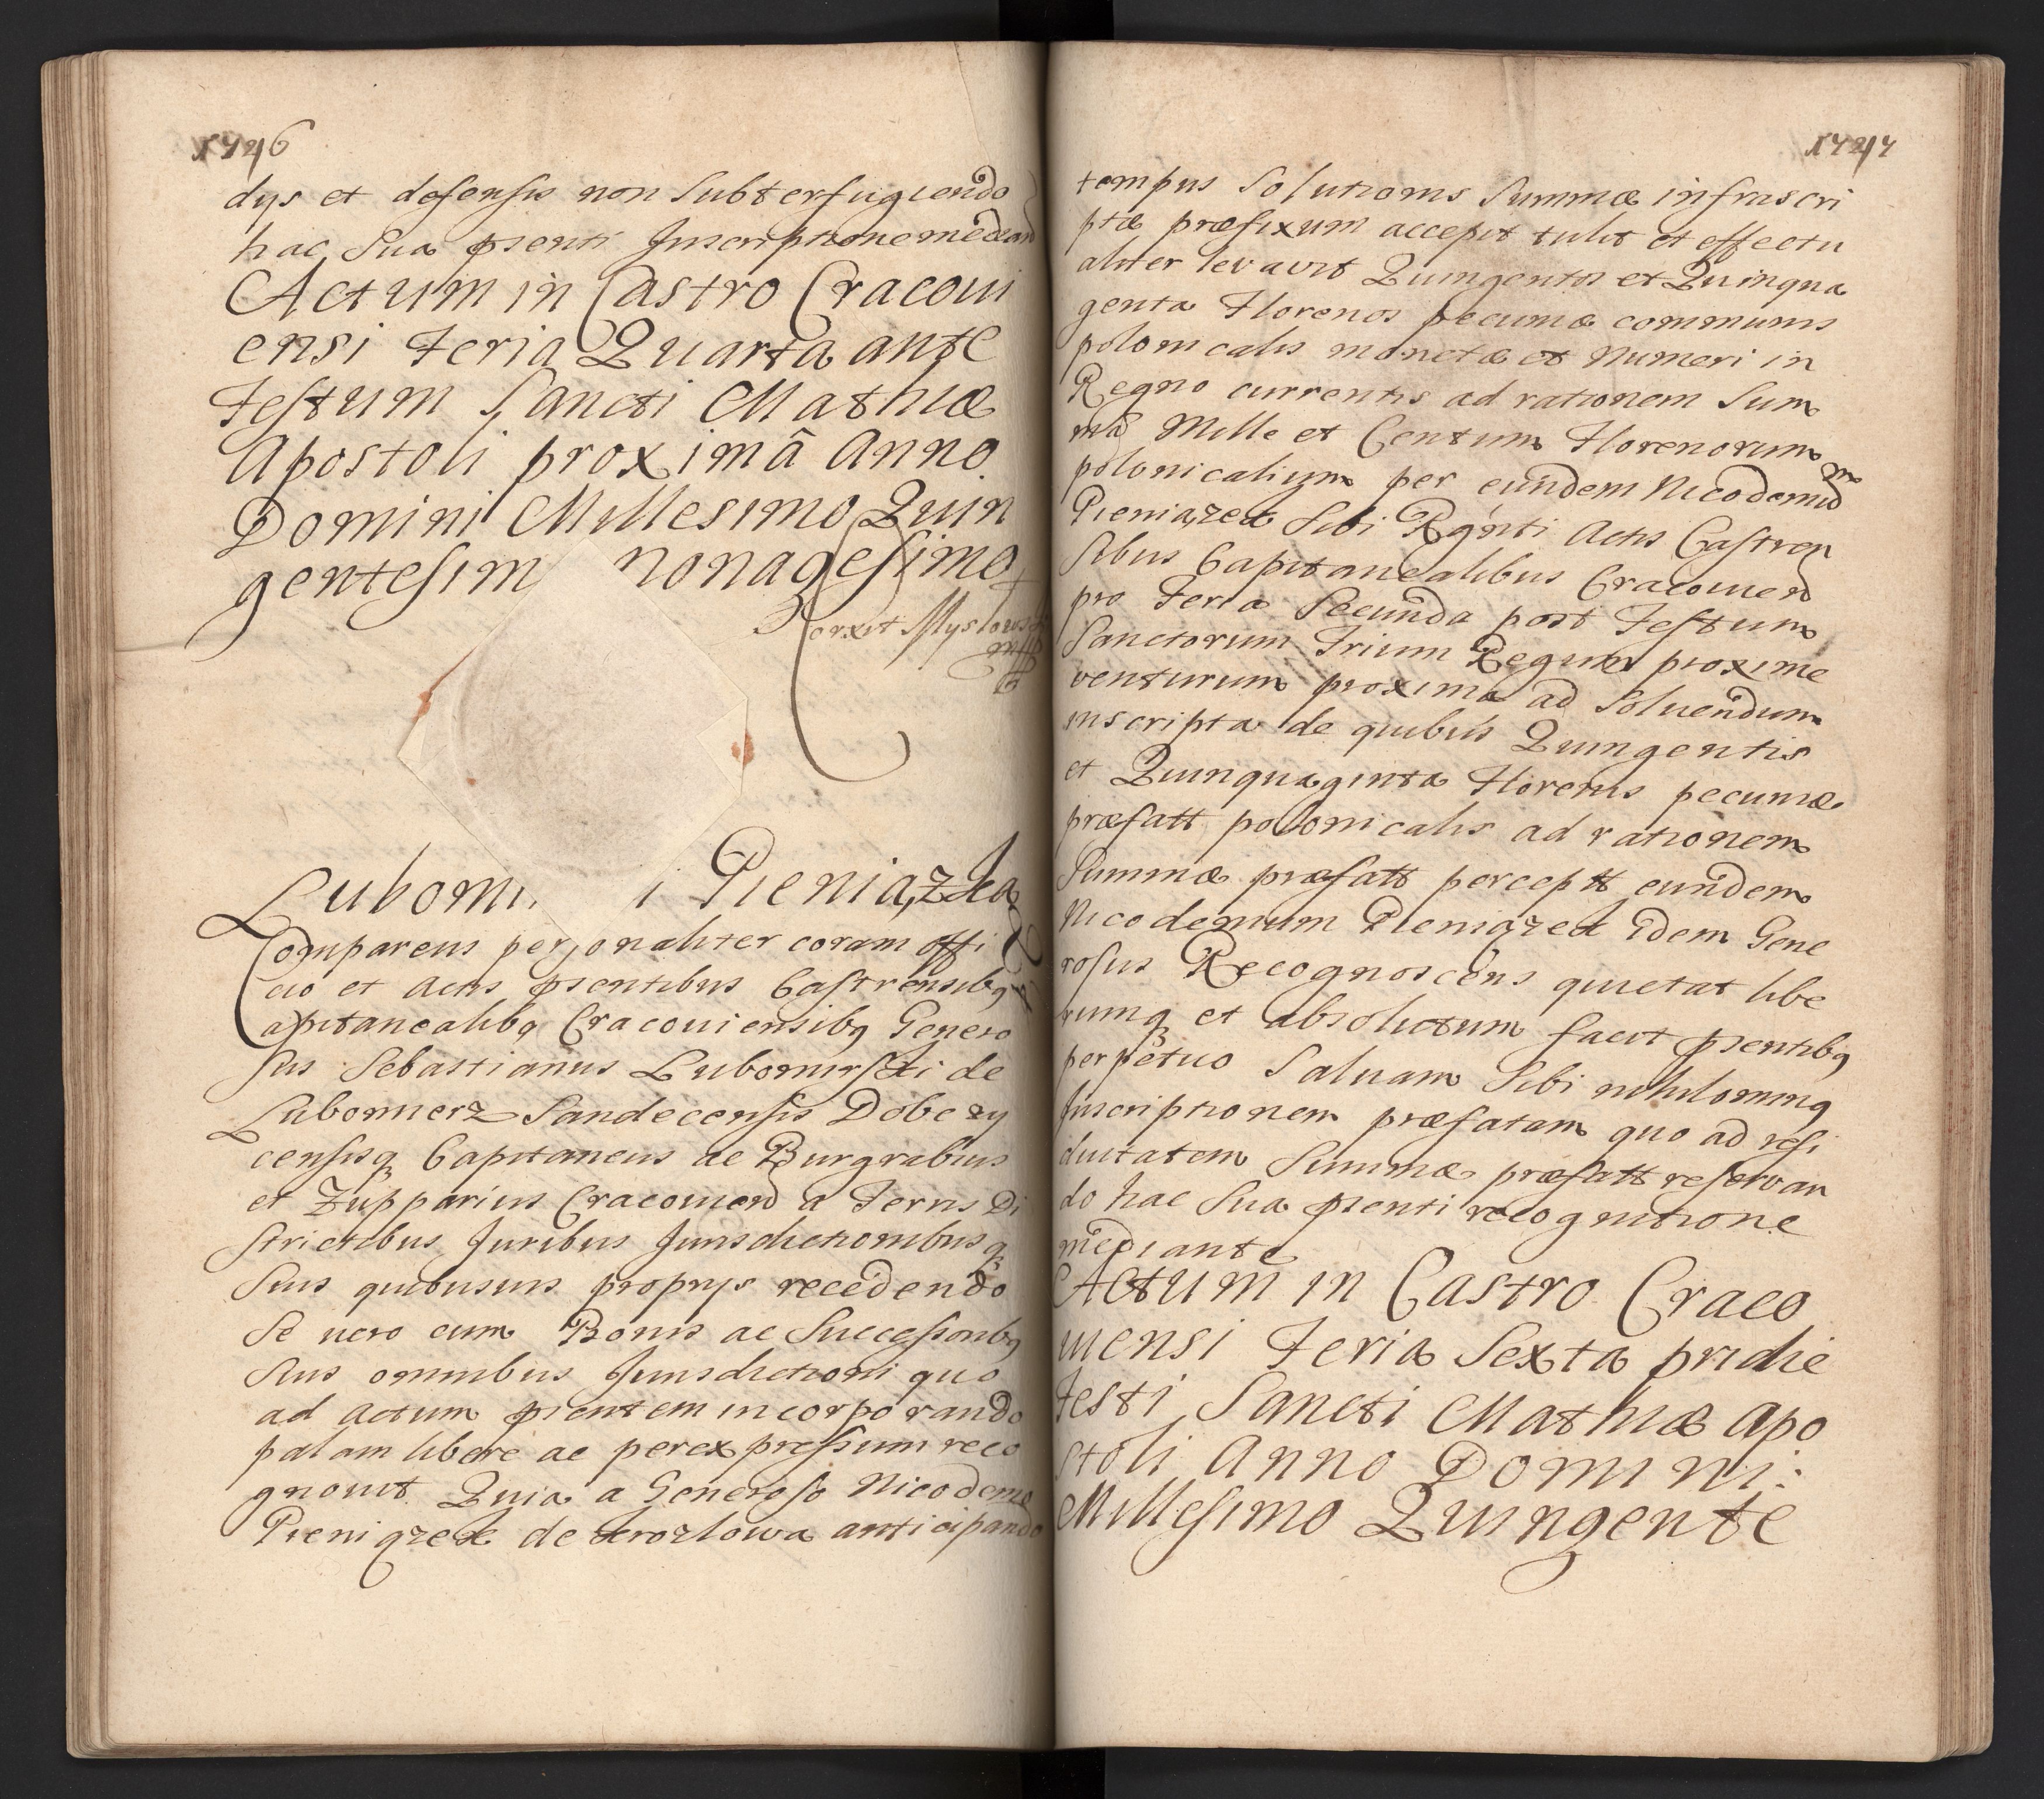 1746
dys et defensis non Subterfugiendo
hac Sua pnti Inscriptione median
Actum in Castro Cracoui
ensi Feria Quarta ante
Festum Sancti Mathiæ
Apostoli proximâ Anno
Domini Millesimo Quin
gentesim nonagesimo
Porxit Myslows
Lubomi i Pieniązka
Comparens personaliter coram offi
cio et Actis pntibus Castrensibq
Capitanealibq Cracouiensibq Genero
sus Sebastianus Lubomirski de
Lubomierz Sandecensis Dobczy
censisq Capitaneus ac Burgrabius
et Zupparius Cracouien a Terris Di
strictibus Juribus Jurisdictionibus q
Suis quibusuis proprys recedendo
Se uero cum Bonis ac Successoribq
Suis omnibus Jurisdictioni quo
ad Actum pntem incorporando
palam libere ac per expressum reco
gnouit Quia a Generoso Nicodemo
Pieniązek de Krozlowa anticipando
1747
tempus Solutionis Summæ infrascri
ptæ præfixum accepit tulit et effectu
aliter levavit Quingentos et Quinqua
genta Florenos pecuniæ communis
polonicalis monetæ et Numeri in
Regno currentis ad rationem Sum
mæ Mille et Centum Florenorum
polonicalium per eundem Nicodemum
Pieniązek Sibi Rgnti Actis Castren
sibus Capitanealibus Cracouien
pro Feria Secunda post Festum
Sanctorum Trium Regum proxime
venturum proxima ad Soluendum
inscripta de quibus Quingentis
et Quinquaginta Florenis pecuniæ
præfatt polonicalis ad rationem
Summæ præfatt percept eundem
Nicodemum Pieniązek Idem Gene
rosus Recognoscens quietat libe
rumq et absolutum facit pntibq
perpetuo Saluam Sibi nihilominq
Inscriptionem præfatam quo ad resi
duitatem Summæ præfatt reservan
do hac Sua pnti recognitione
mediante
Actum in Castro Craco
uiensi Feria Sexta pridie
Festi Sancti Mathiæ Apo
stoli Anno Domini:
Millesimo Quingente